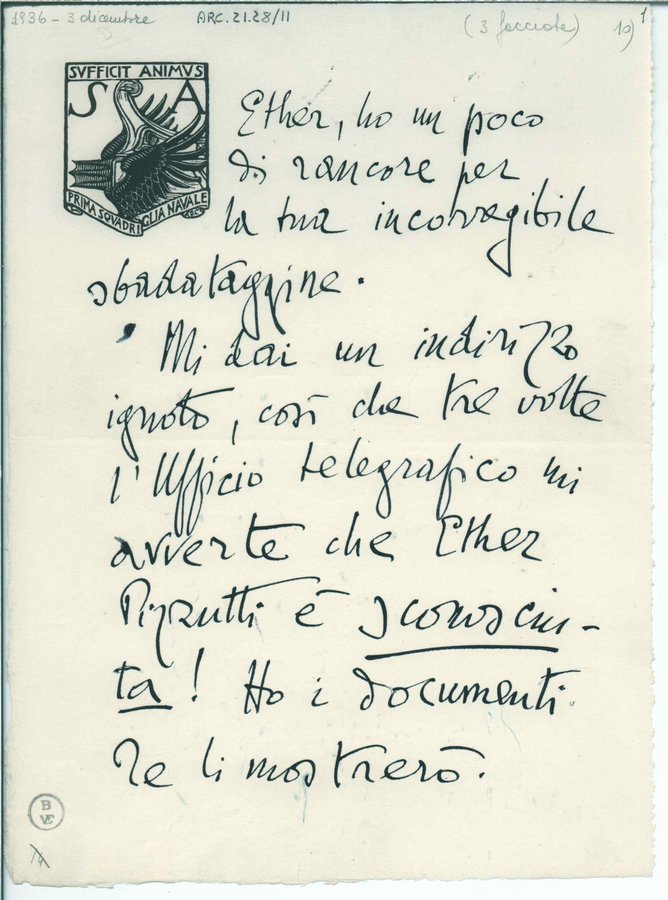 1936 - 3 dicembre ARC.21.28/11 (3 facciate) 10) 1
SVFFICIT ANIMVS
S A
PRIMA SQVADRIGLIA NAVALE
Ether, ho un poco
di rancore per
la tua incorregibile
sbadataggine.
Mi dai un indirizzo
ignoto, così che tre volte
l'Ufficio telegrafico mi
avverte che Ether
Pizzutti è sconosciu-
ta! Ho i documenti.
Te li mostrerò.
B
VE